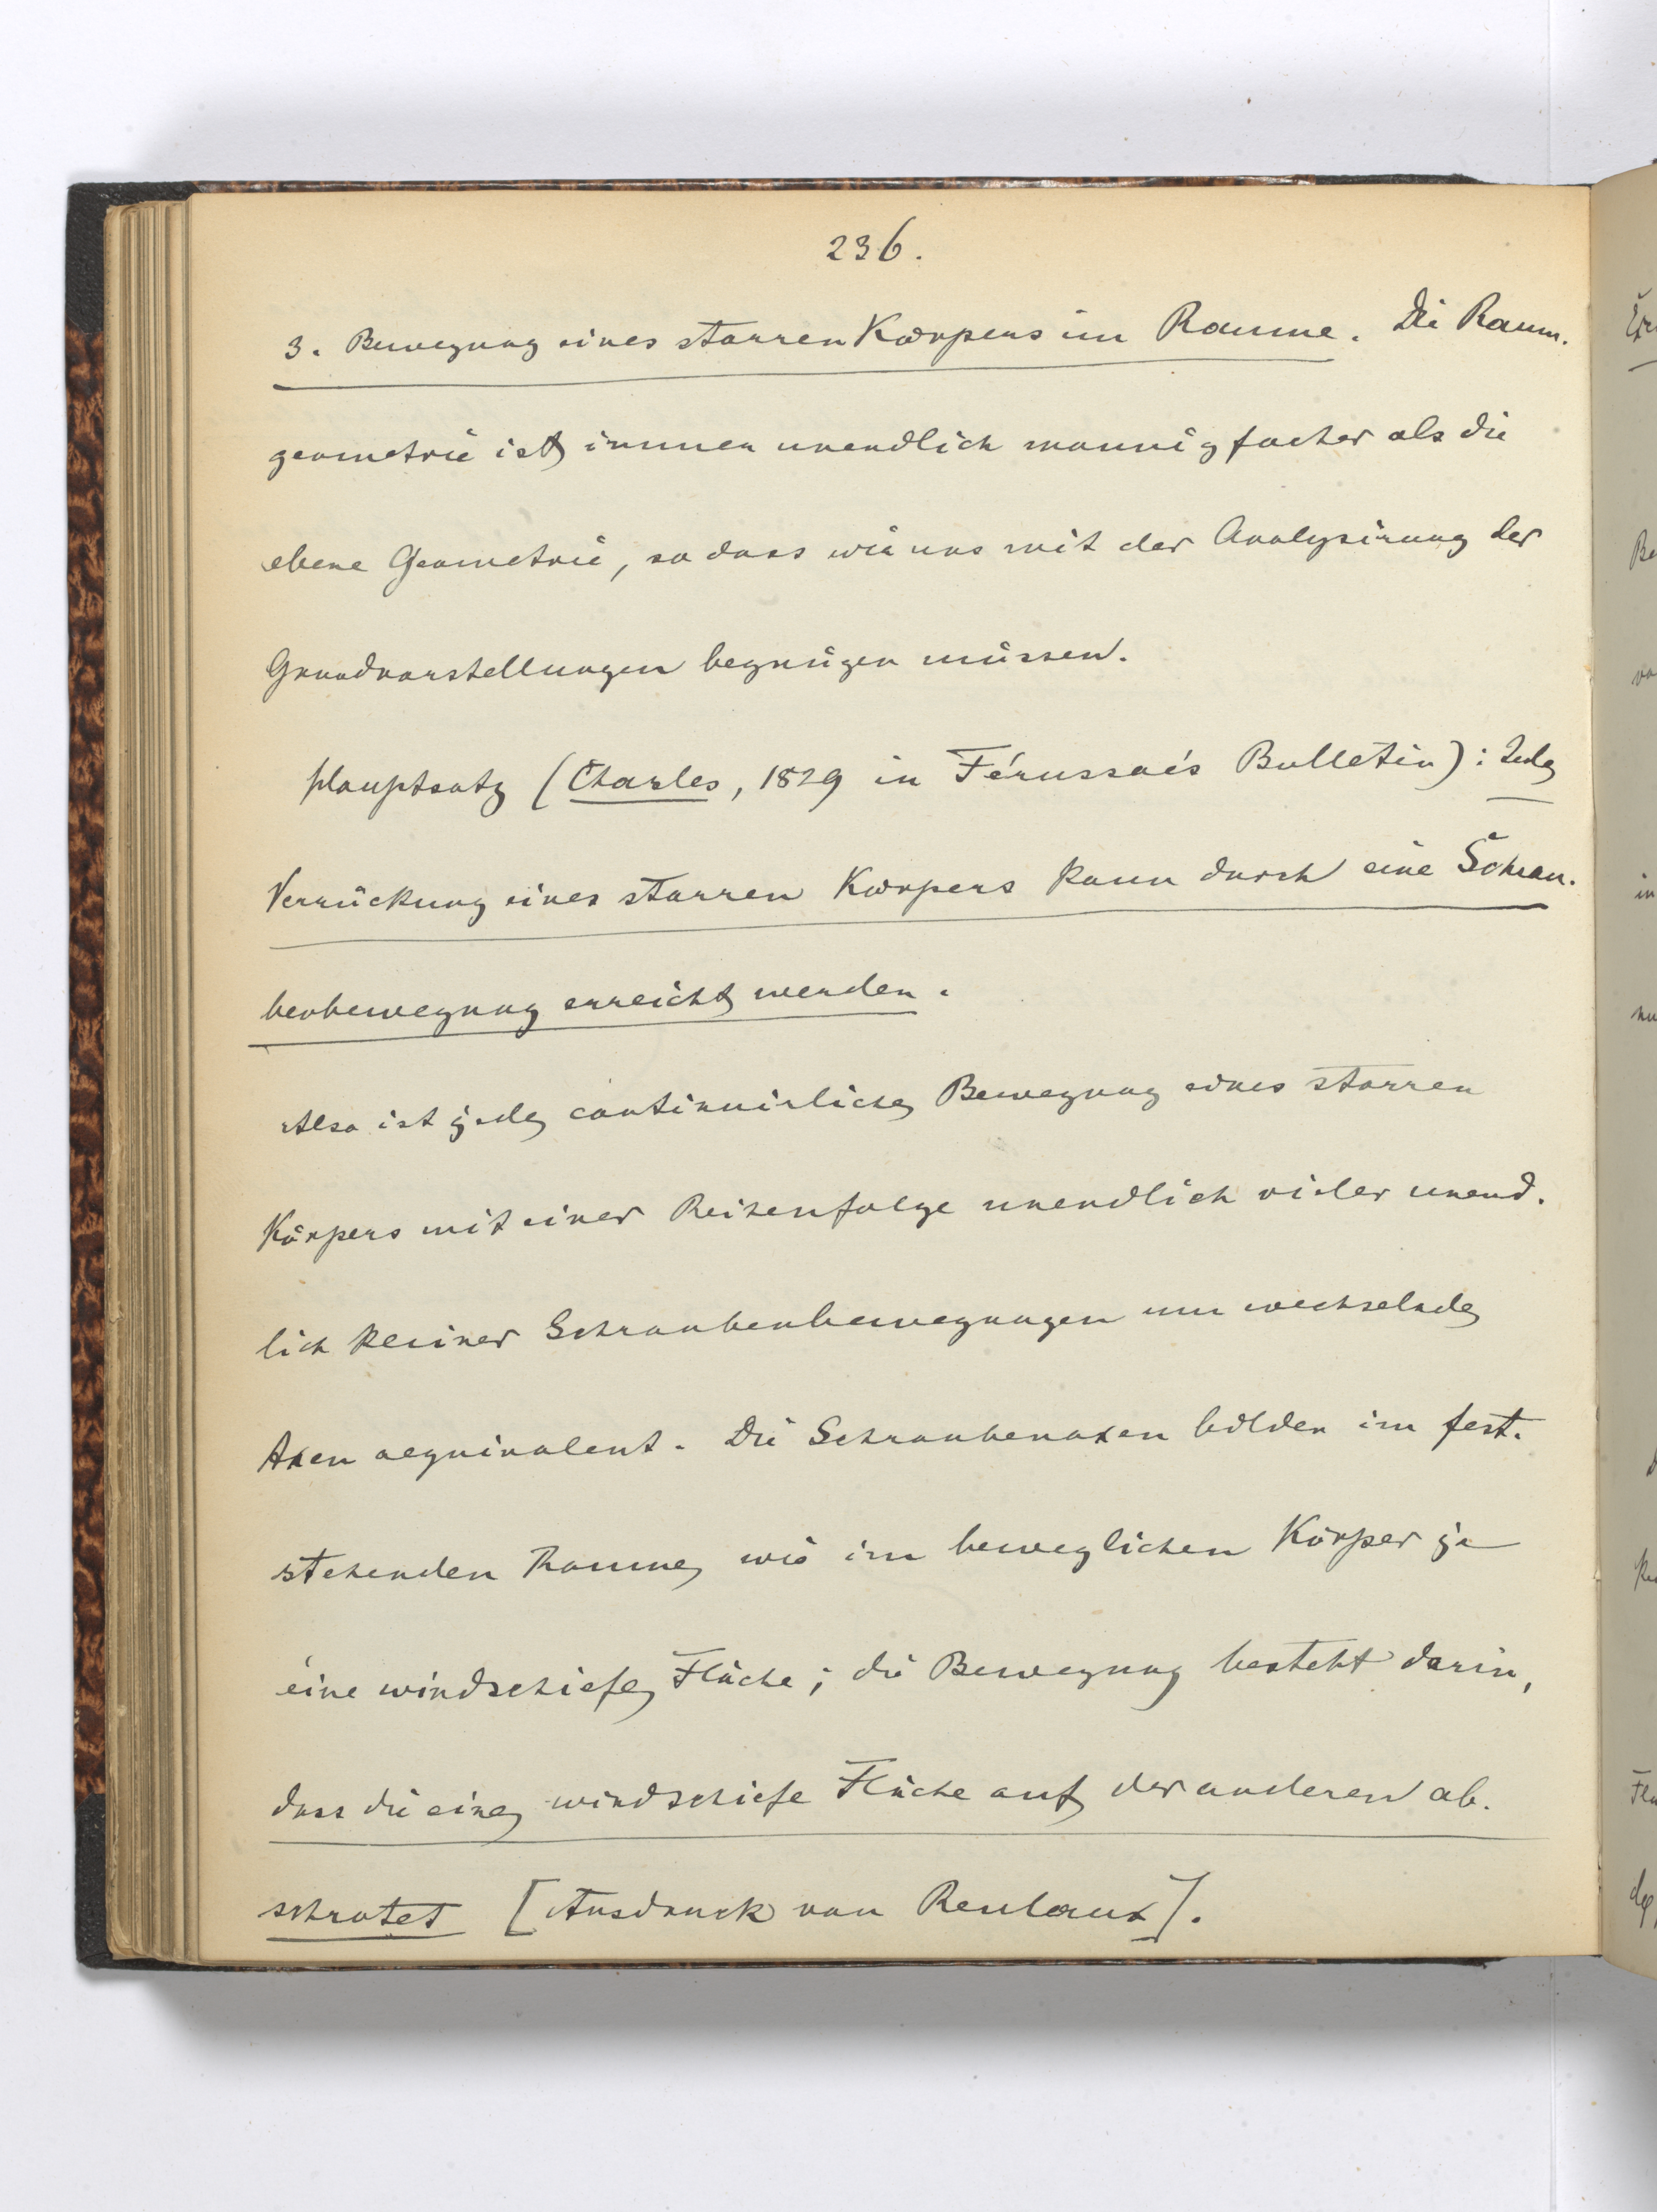 236.
3. Bewegung eines starren Körpers im Raume. Die Raum-
geometrie ist immer unendlich mannigfacher als die
ebene Geometrie, so dass wir uns mit der Analysirung der
Grundvorstellungen begnügen müssen.
Hauptsatz (Chasles, 1829 in Férussac's Bulletin): Jede
Verrückung eines starren Körpers kann durch eine Schrau-
benbewegung erreicht werden.
Also ist jede continuirliche Bewegung eines starren
Körpers mit einer Reihenfolge unendlich vieler unend-
lich kleiner Schraubenbewegungen um wechselnde
Axen aequivalent. Die Schraubenaxen bilden im fest-
stehenden Raume, wie im beweglichen Körper je
eine windschiefe Fläche; die Bewegung besteht darin,
dass die eine windschiefe Fläche auf der anderen ab-
schrotet [Ausdruck von Reuleaux].